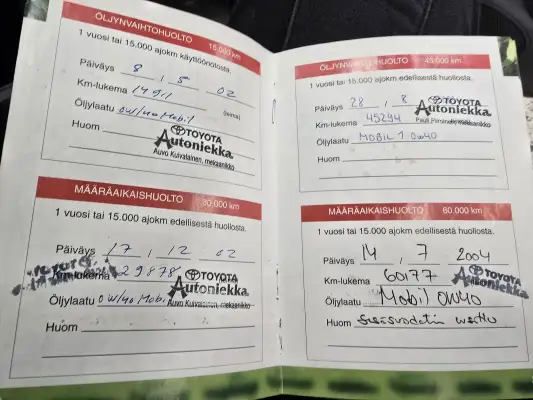 ÖLJYNVAIHTOHUOLTO 15.000 km
1 vuosi tai 15.000 ajokm käyttöönotosta.
Päiväys 8 . 5 02
Km-lukema
Öljylaatu 0W/40 Mobil
Huom
TOYOTA
Autoniekka
Auvo Kuivalainen, mekaanikko
MÄÄRÄAIKAISHUOLTO 30.000 km
1 vuosi tai 15.000 ajokm edellisestä huollosta.
Päiväys 17 . 12 02
Km-lukema 29878
Öljylaatu 0W/40 Mobil
Huom
TOYOTA
Autoniekka
Auvo Kuivalainen, mekaanikko
ÖLJYNVAIHTOHUOLTO 45.000 km
1 vuosi tai 15.000 ajokm edellisestä huollosta.
Päiväys 28 . 8
Km-lukema 45294
Öljylaatu MOBIL 1 0W40
Huom
TOYOTA
Autoniekka
MÄÄRÄAIKAISHUOLTO 60.000 km
1 vuosi tai 15.000 ajokm edellisestä huollosta.
Päiväys 14 . 7 2004
Km-lukema 60177
Öljylaatu Mobil 0W40
Huom
TOYOTA
Autoniekka